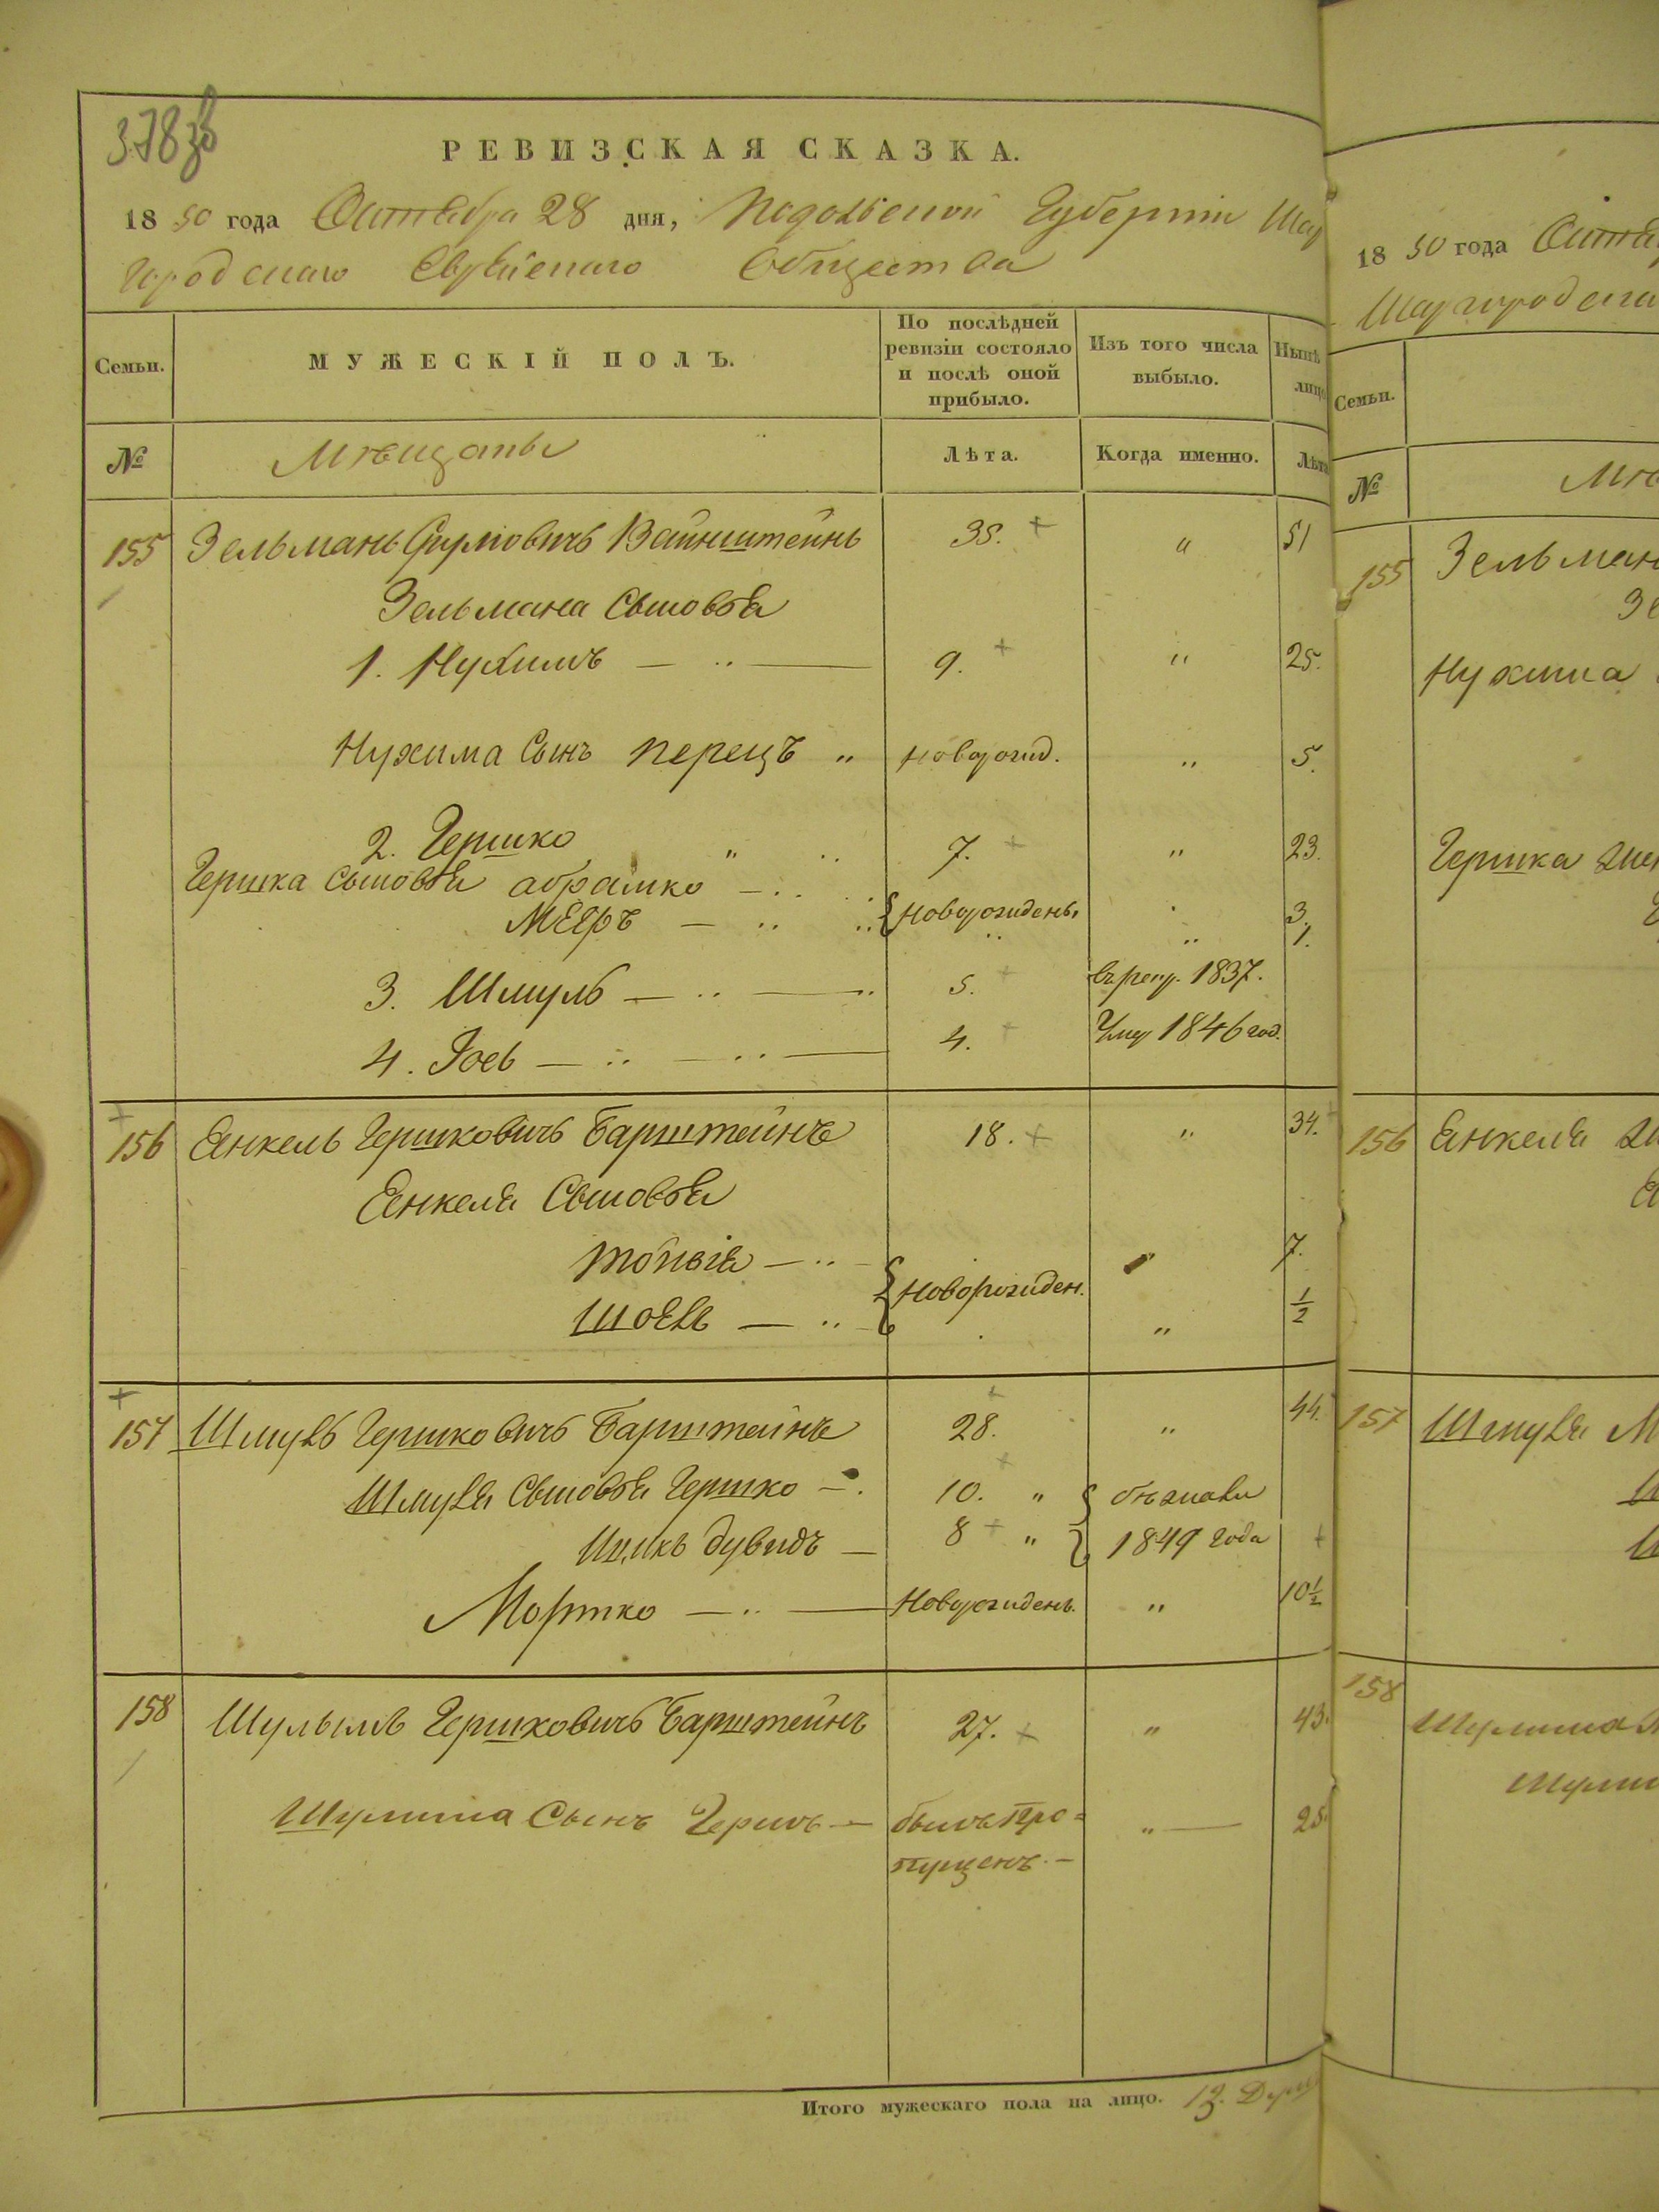 378 зв
РЕВИЗСКАЯ СКАЗКА.
18 50 года Октября 28 дня, Подольской Губерніи Шар
городскаго Еврейскаго Общества
Семьи.
МУЖЕСКІЙ ПОЛЪ.
По послѣдней ревизіи состояло и послѣ оной прибыло.
Изъ того числа выбыло.
Нынѣ лицо
№ Мѣщаны Лѣта. Когда именно. Лѣта
155 Зельманъ Вайнштейнъ 35. + " 51
Зельмана Сыновья
1. Нухимъ — .. — 9. + " 25.
Нухима Сынъ Перецъ " Новорожд. " 5.
2. Гершко " .. 7. + " 23.
Гершка Сыновья Абрамко — .. Новорожденъ 3.
Мееръ — .. .. .. 1.
3. Шмуль — .. — .. 5. + въ рекр. 1837.
4. Іось — .. — .. — 4. + Умер 1846 год.
156 Янкель Гершковичъ Барштейнъ 18. + " 34.
Янкеля Сыновья
Тобія — .. Новорожден. " 7.
Шоель — .. " 1/2
157 Шмуль Гершковичъ Барштейнъ 28. + " 44.
Шмуля Сыновья Гершко — . 10. + " бѣжали
Ицикъ Дувидъ — 8 + " 1849 года +
Мортко — .. — Новорожденъ. " 10 1/2
158 Шулымъ Гершковичъ Барштейнъ 27. + " 43.
Шулима Сынъ Гершъ — былъ про=
пущенъ. — " — 25.
Итого мужескаго пола на лицо. 12.
18 50 года Октя
Шаргородска
Семьи.
№ Мѣ
155 Зельман
Зе
Нухима
Гершка жен
156 Янкеля ж
157 Шмуля
158 Шулима
Шули